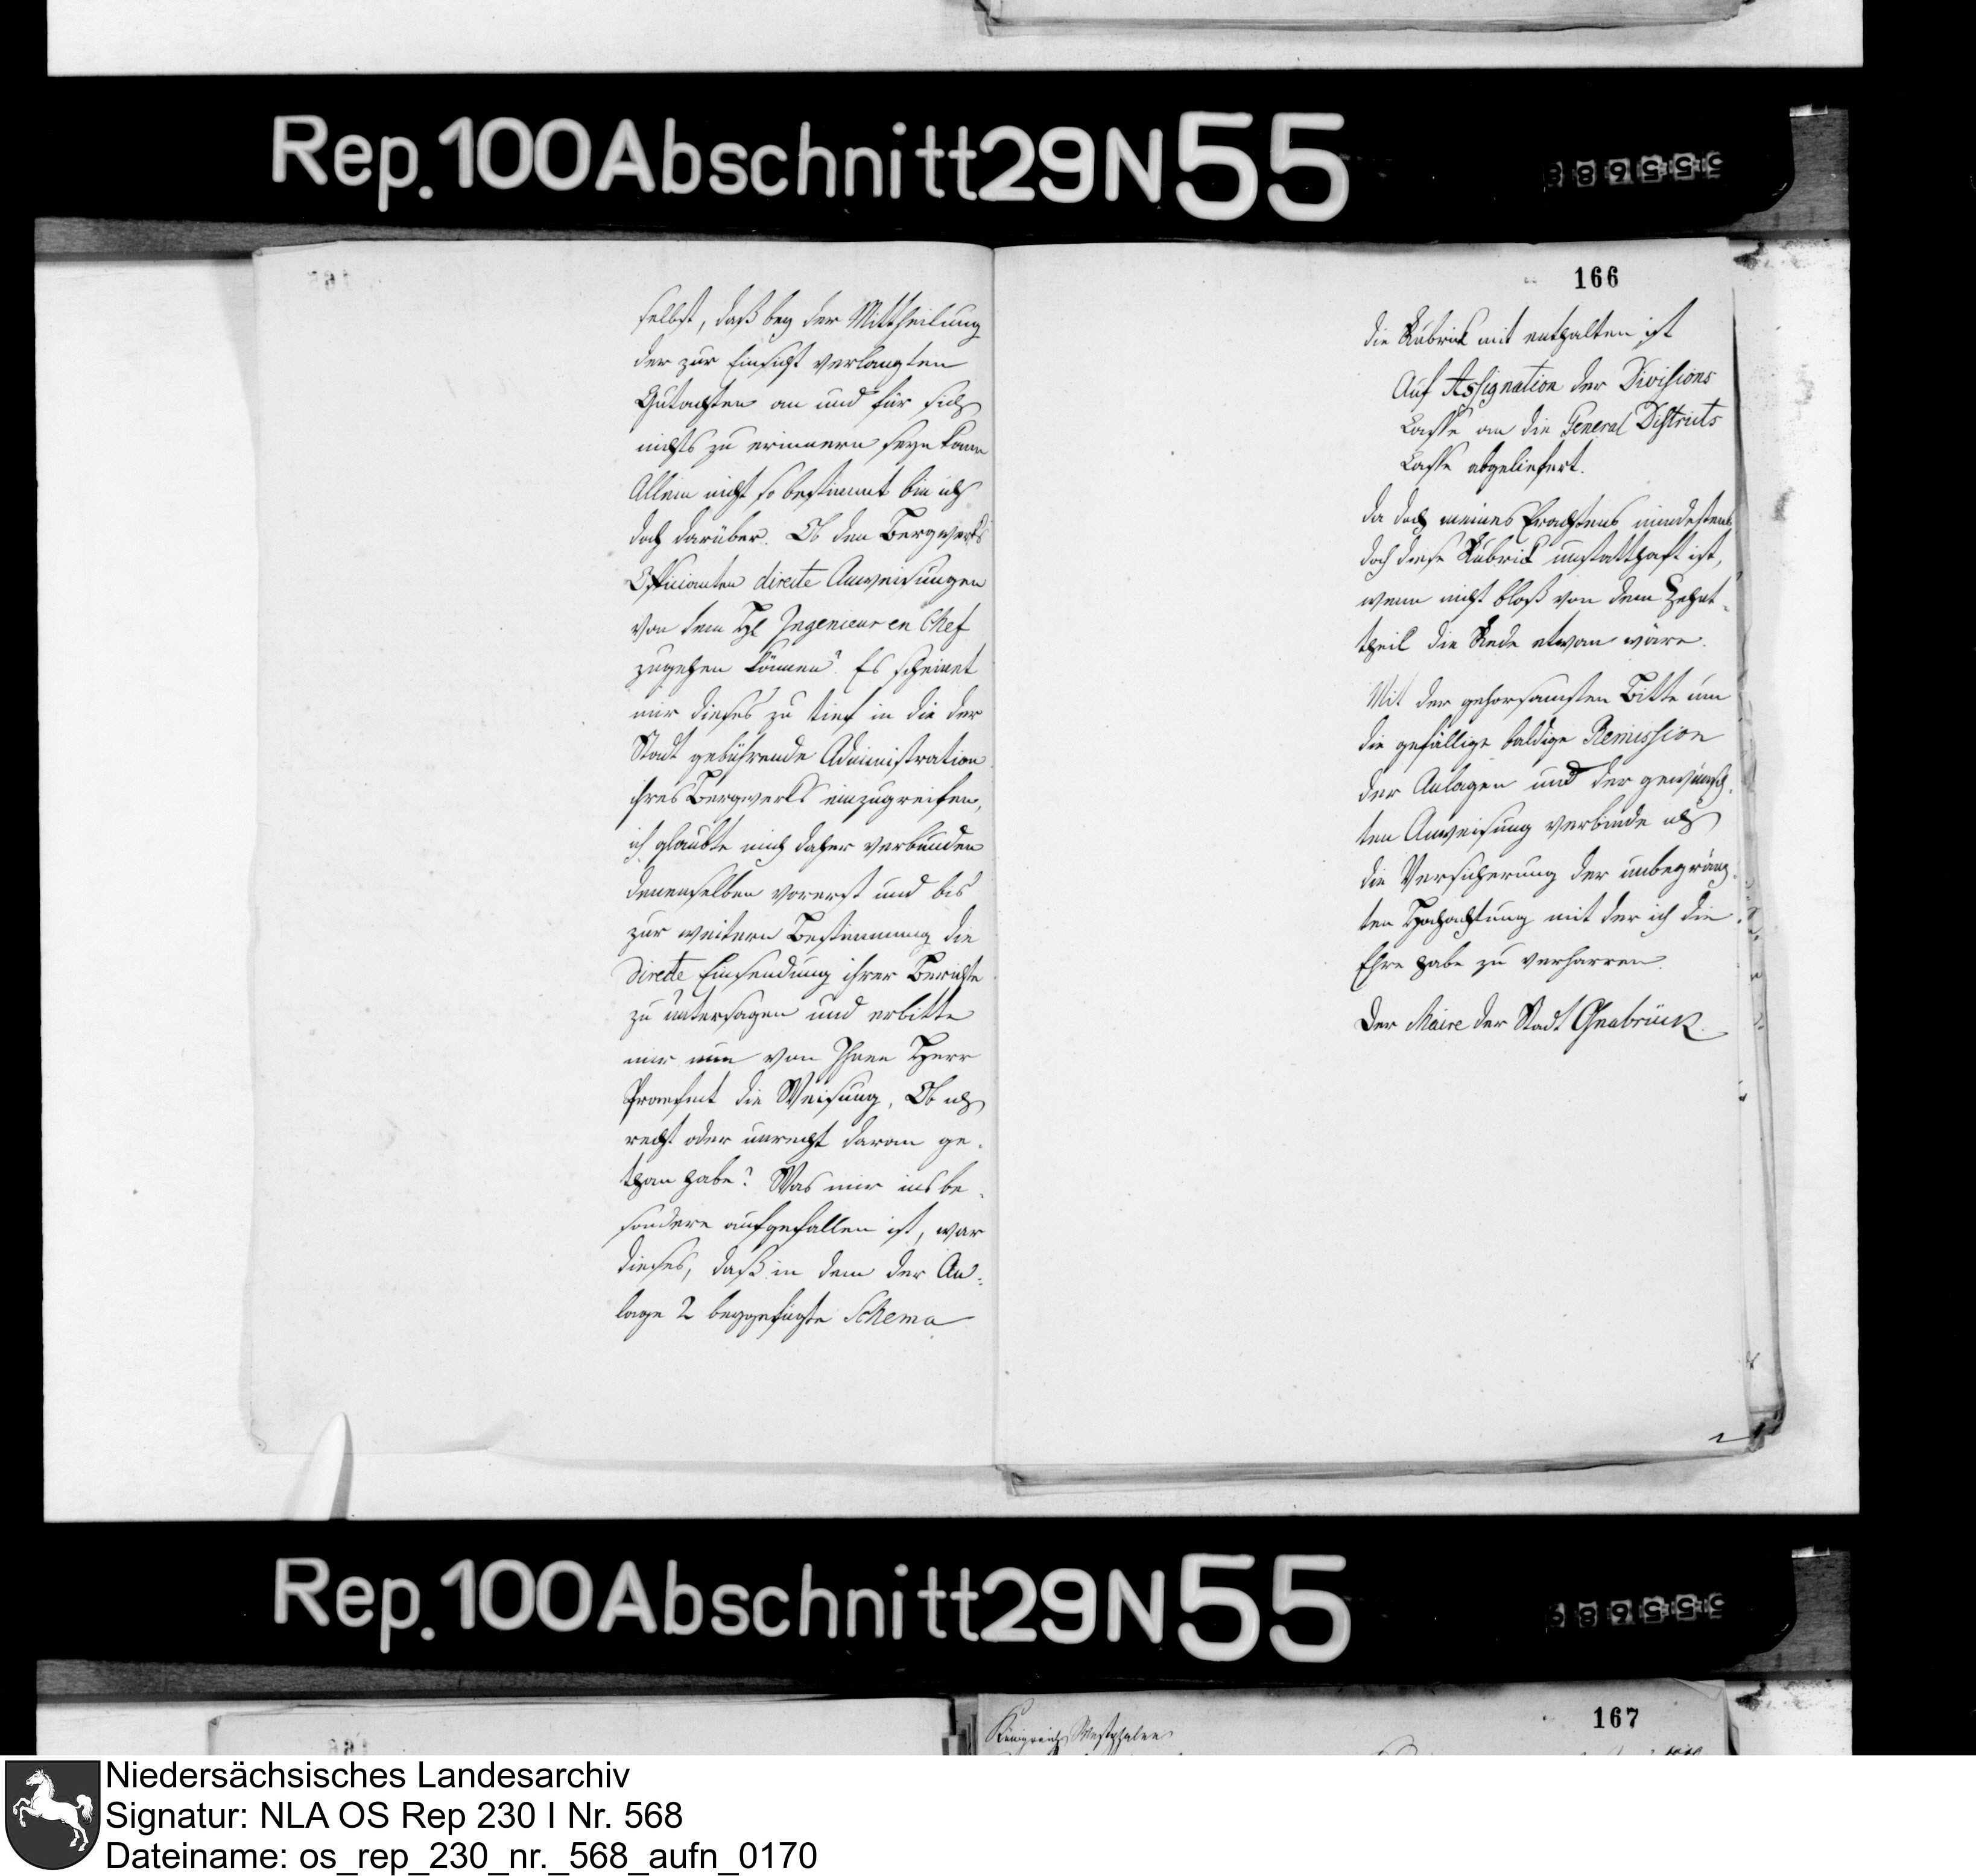 Rep. 100 Abschnitt 29 N 55
555688
selbst, daß bey der Mittheilung
der zur Einsicht verlangten
Gutachten an und für sich
nichts zu erinnern seyn kann
Allein nicht so bestimmt bin ich
doch darüber. Ob den Bergwerks
Officianten directe Anweisungen
von dem Ingenieur en Chef
zugehen können? Es scheinet
mir dieses zu tief in die der
Stadt gebührende Administration
ihres Bergwerks einzugreifen,
ich glaubte mich daher verbunden
denenselben vorerst und bis
zur weitern Bestimmung die
directe Einsendung ihrer Berichte
zu untersagen und erbitte
mir nun von Ihnen Herr
Praefect die Weisung, Ob ich
recht oder unrecht daran ge-
than habe? Was mir insbe-
sondere aufgefallen ist, war
dieses, daß in dem der An-
lage 2 beygefügte Schema
166
die Rubrick mit enthalten ist
Auf Assignation der Divisions
Casse an die General Districts
Casse abgeliefert.
da doch meines Erachtens mindestens
doch diese Rubrick unstatthaft ist,
wenn nicht bloß von dem Zehnt-
theil die Rede etwan wäre.
Mit der gehorsamsten Bitte um
die gefällige baldige Remission
der Anlagen und der gewünsch-
ten Anweisung verbinde ich
die Versicherung der unbegränz-
ten Hochachtung mit der ich die
Ehre habe zu verharren.
Der Maire der Stadt Osnabrück.
Rep. 100 Abschnitt 29 N 55
555689
167
Königreich Westphalen
Niedersächsisches Landesarchiv
Signatur: NLA OS Rep 230 I Nr. 568
Dateiname: os_rep_230_nr._568_aufn_0170